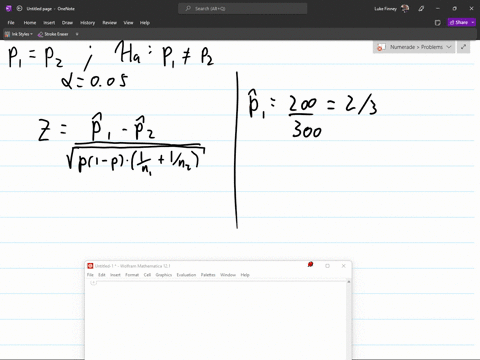 Untitled page - OneNote
Search (Alt+E)
Luke Finney
File Home Insert Draw History Review View Help
Share
Ink Styles Stroke Eraser
Numerade » Problems
P₁ = P₂ ; Ha: P₁ ≠ P₂
α = 0.05
Z = (p̂₁ - p̂₂) / √(p(1-p)·(1/n₁ + 1/n₂))
p̂₁ = 200/300 = 2/3
Untitled-1 * - Wolfram Mathematica 12.1
File Edit Insert Format Cell Graphics Evaluation Palettes Window Help